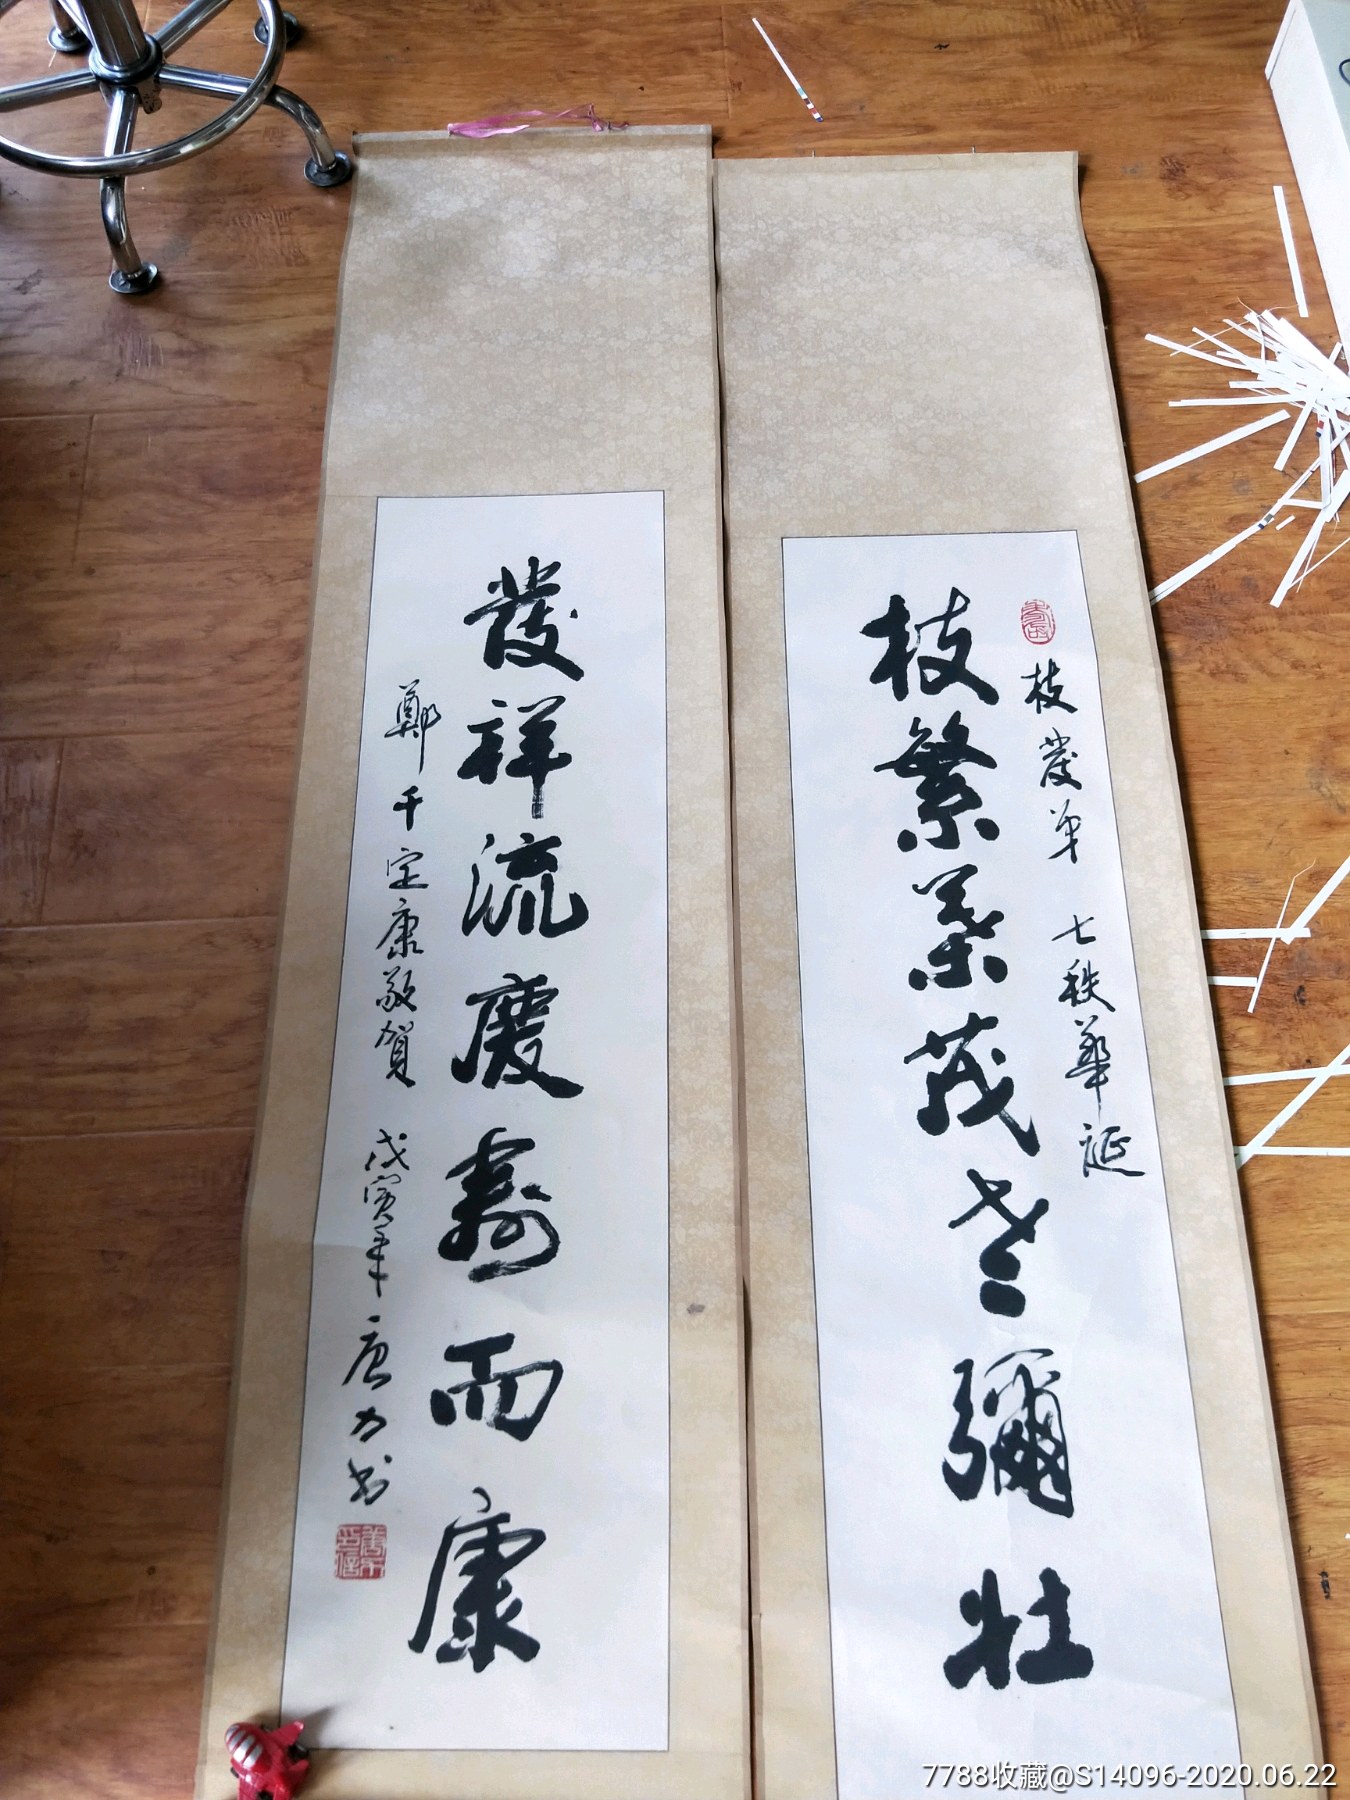 枝發弟 七秩華誕
枝繁葉茂老彌壯
發祥流慶壽而康
鄭千定康敬賀 戊寅年 唐力书
7788收藏@S14096-2020.06.22